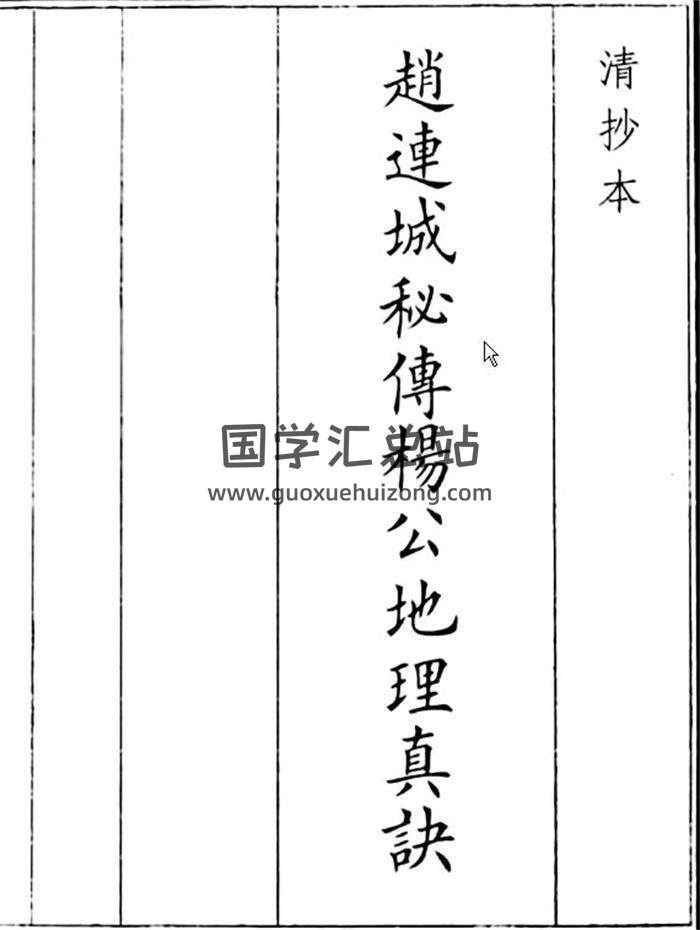 清抄本
趙連城秘傳楊公地理真訣
国学汇总站
www.guoxuehuizong.com